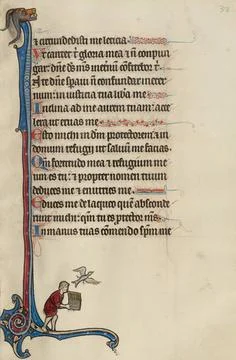 & circundedisti me leticia.
Vt cantet t gloria mea & ñ conpun
gar: dñe ds ms in eternũ cõfitebor t.
In te dñe speravi ñ confundar in eter
num: in iusticia tua libera me
Inclina ad me aurem tuam: acce
lera ut eruas me
Esto michi in dm protectorem: & in
domum refugij ut saluũ me facias.
Qm fortitudo mea & refugium me
um es tu: & propter nomen tuum
deduces me & enutries me.
Educes me de laqueo quẽ absconde
runt michi: qm tu es ptector ms.
In manus tuas cõmendo spm me